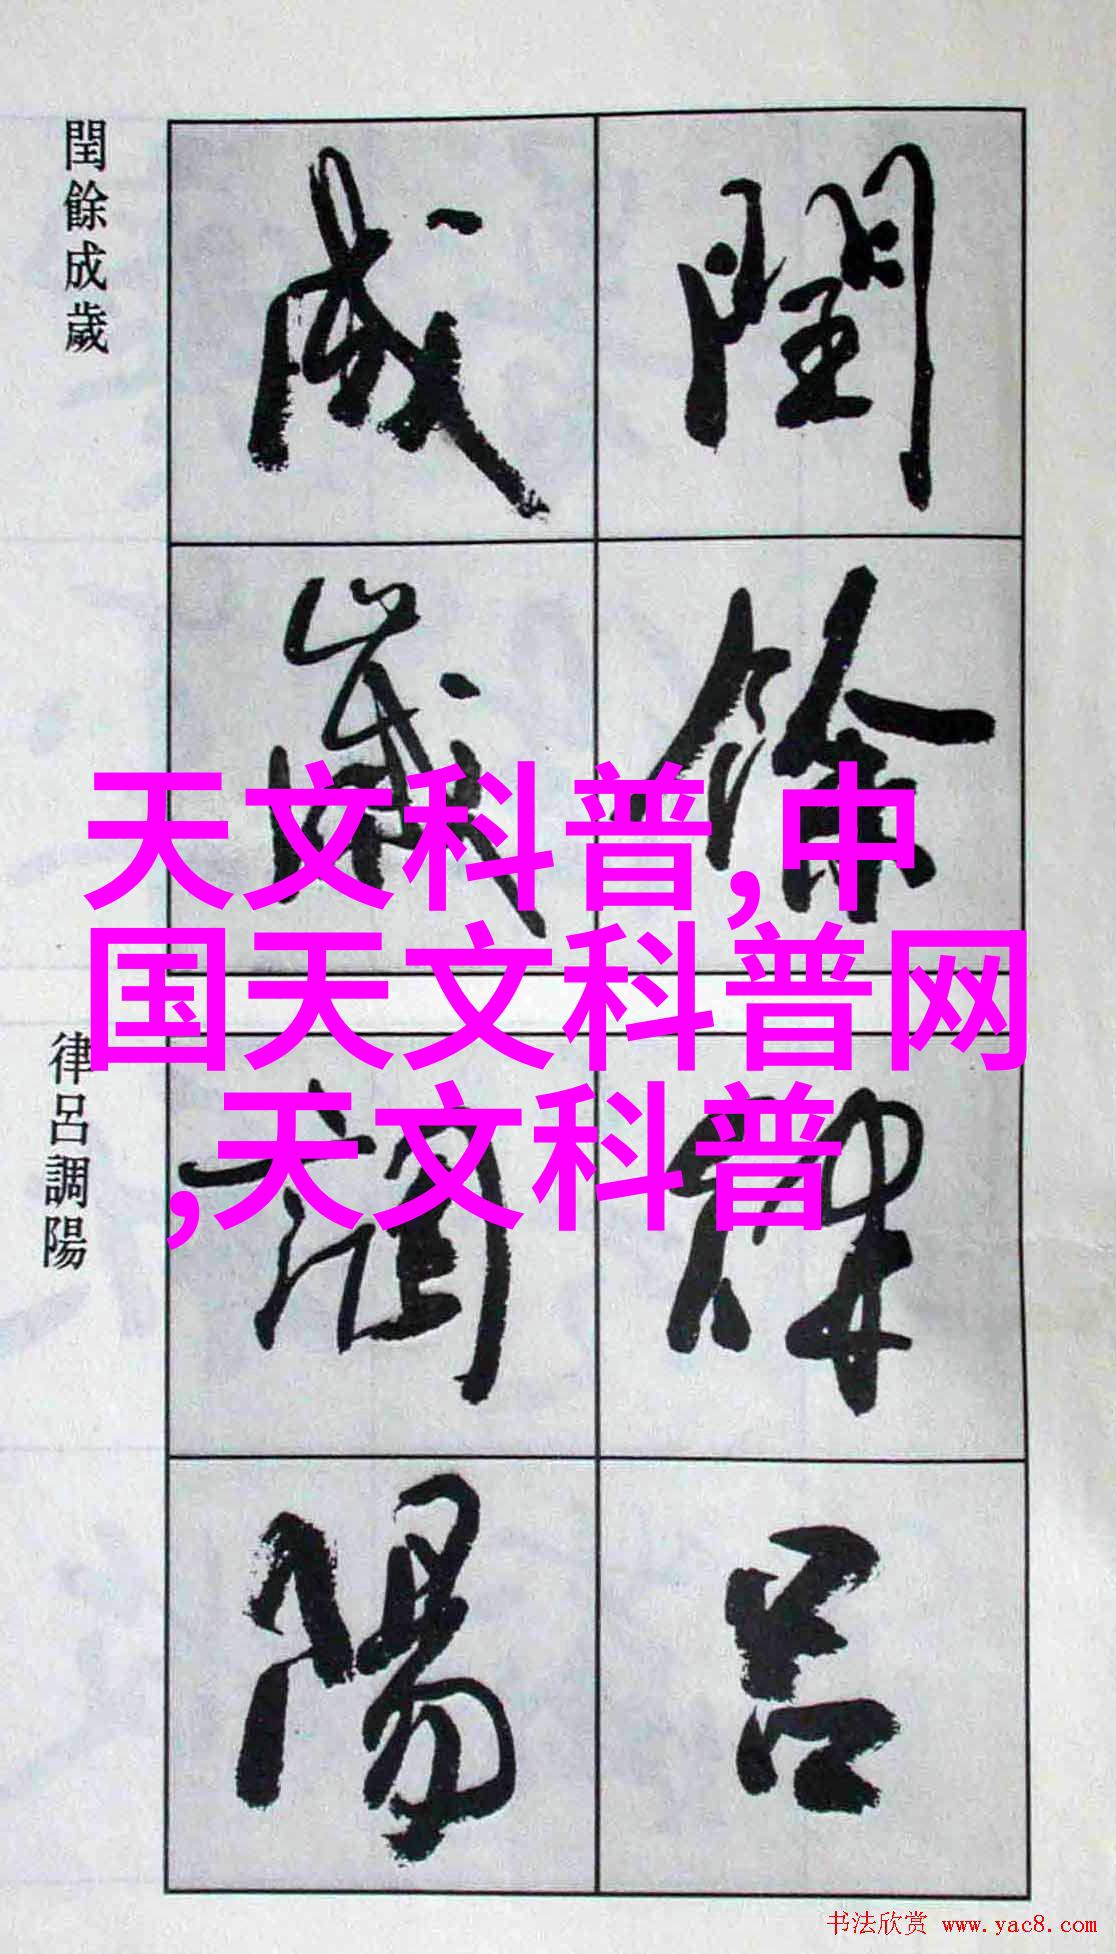 閏餘成歲
閏餘
成歲
天文科普,中
国天文科普网
,天文科普
律呂調陽
律呂
調陽
书法欣赏 www.yac8.com